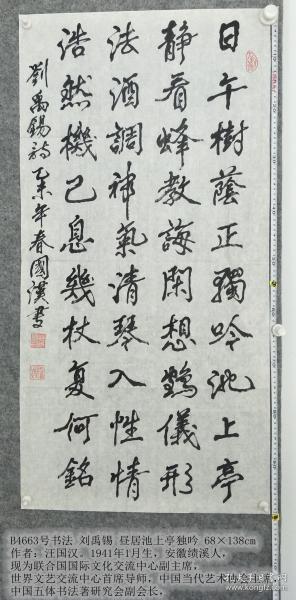 日午樹蔭正獨吟池上亭
静看蜂教誨閑想鶴儀形
法酒調神氣清琴入性情
浩然機已息幾杖复何銘
劉禹錫詩乙未年春國漢書
B4663号书法 刘禹锡 昼居池上亭独吟 68×138cm
作者：汪国汉。1941年1月生，安徽绩溪人，
现为联合国国际文化交流中心副主席，
世界文艺交流中心首席导师，中国当代艺术协会副主席，
中国五体书法著研究会副会长，